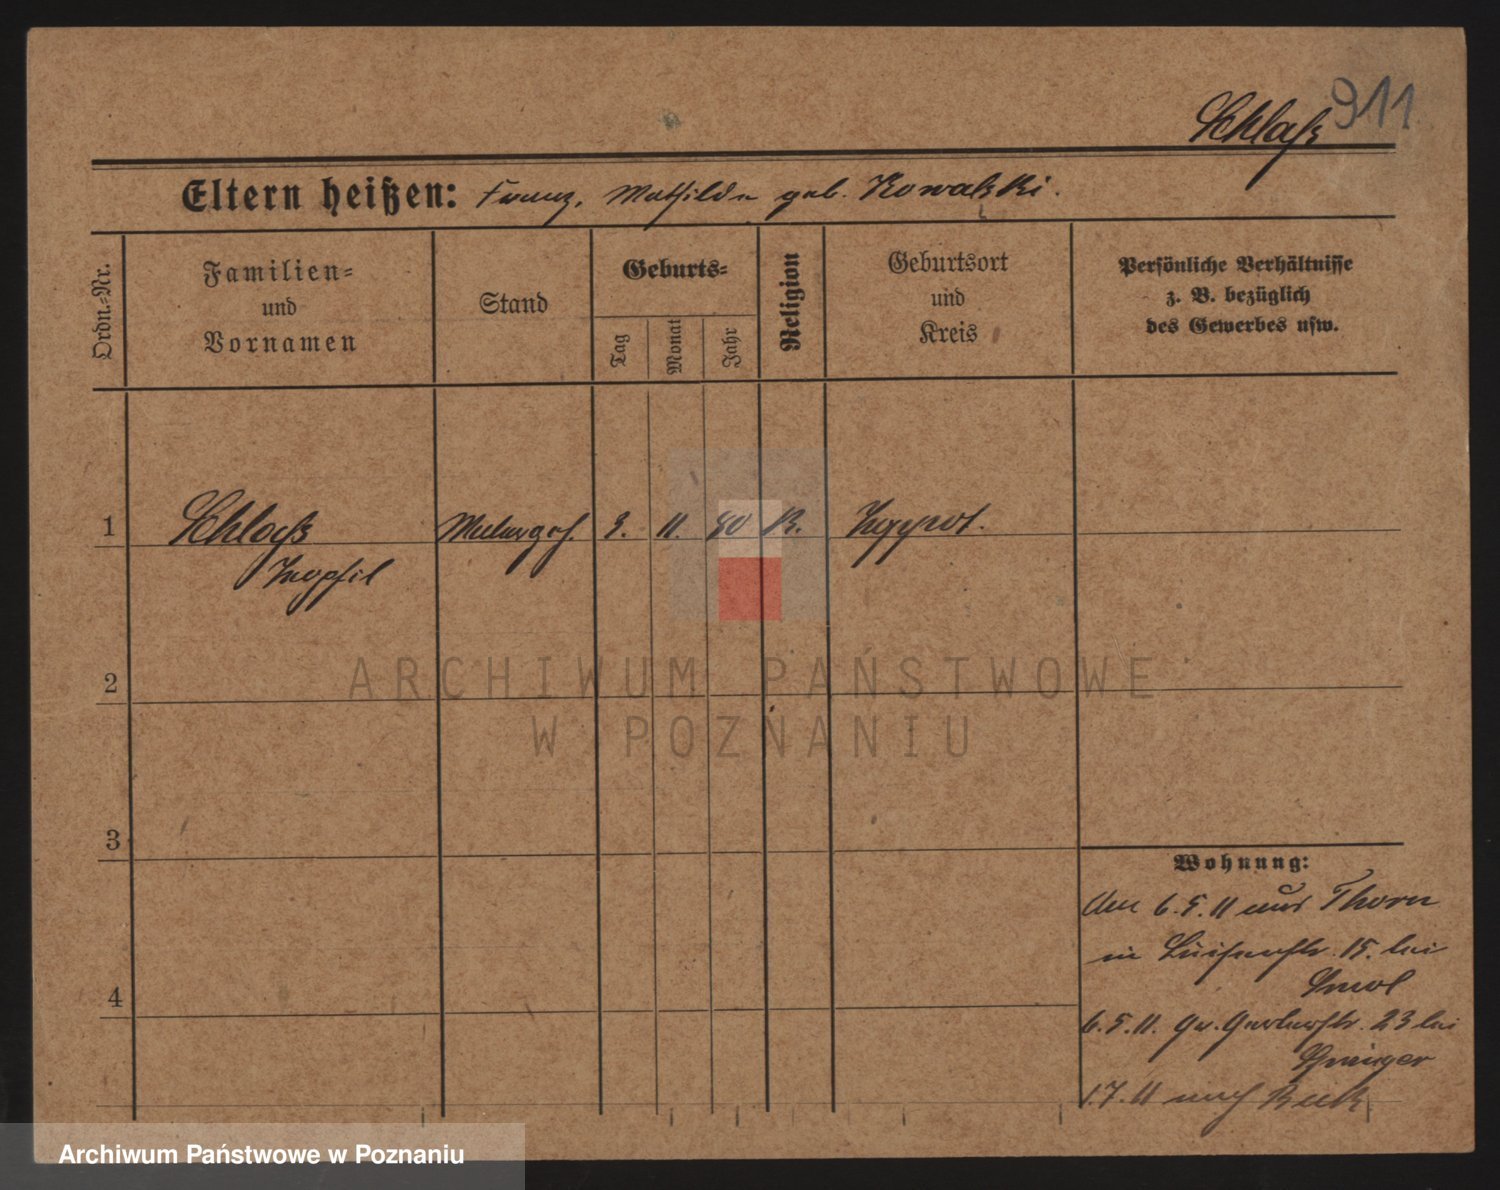 911
Schlaß
Eltern heißen: Franz, Mathilde geb. Kowalski.
Ordn.-Nr.
Familien-
und
Vornamen
Stand
Geburts-
Tag
Monat
Jahr
Religion
Geburtsort
und
Kreis
Persönliche Verhältnisse
z. B. bezüglich
des Gewerbes usw.
1 Schlaß 11. K.
2
ARCHIWUM PAŃSTWOWE
W POZNANIU
3
4
Wohnung:
6.5.11 aus Thorn
in Luisenstr. 15. bei
6.5.11. Gr. Gerberstr. 23 bei
1.7.11 nach
Archiwum Państwowe w Poznaniu